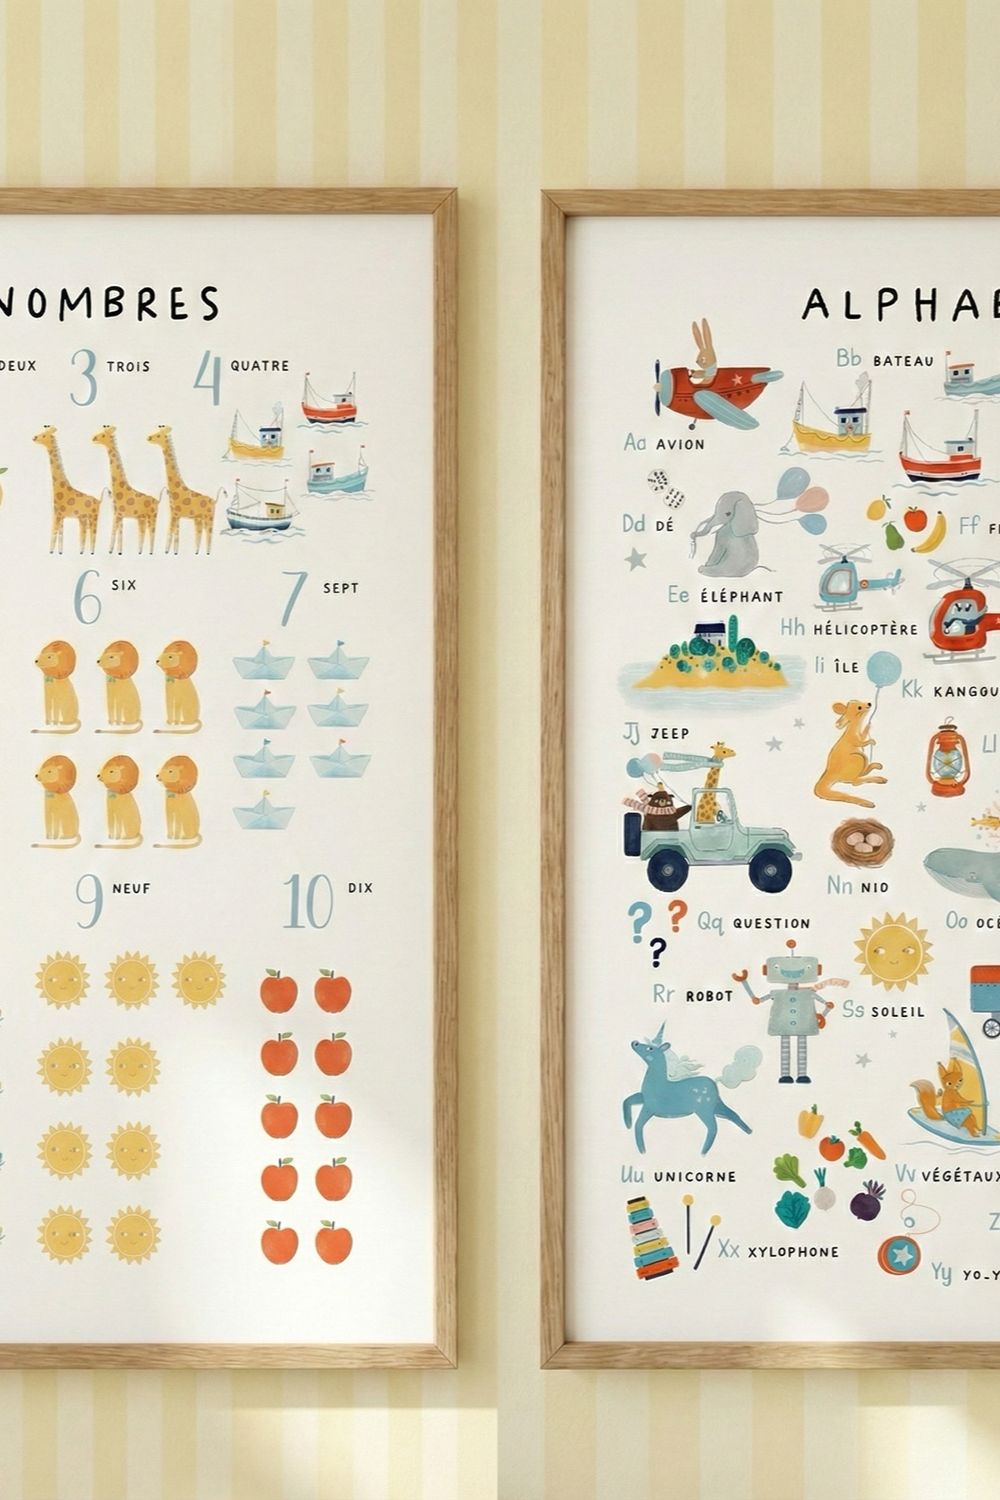 NOMBRES
DEUX 3 TROIS 4 QUATRE
6 SIX 7 SEPT
9 NEUF 10 DIX
ALPHAB
Bb BATEAU
Aa AVION
Dd DÉ
Ff F
Ee ÉLÉPHANT
Hh HÉLICOPTÈRE
Ii ÎLE
Kk KANGOU
Jj JEEP
Ll
Nn NID
Qq QUESTION
Oo OCÉ
Rr ROBOT
Ss SOLEIL
Uu UNICORNE
Vv VÉGÉTAUX
Z
Xx XYLOPHONE
Yy YO-Y